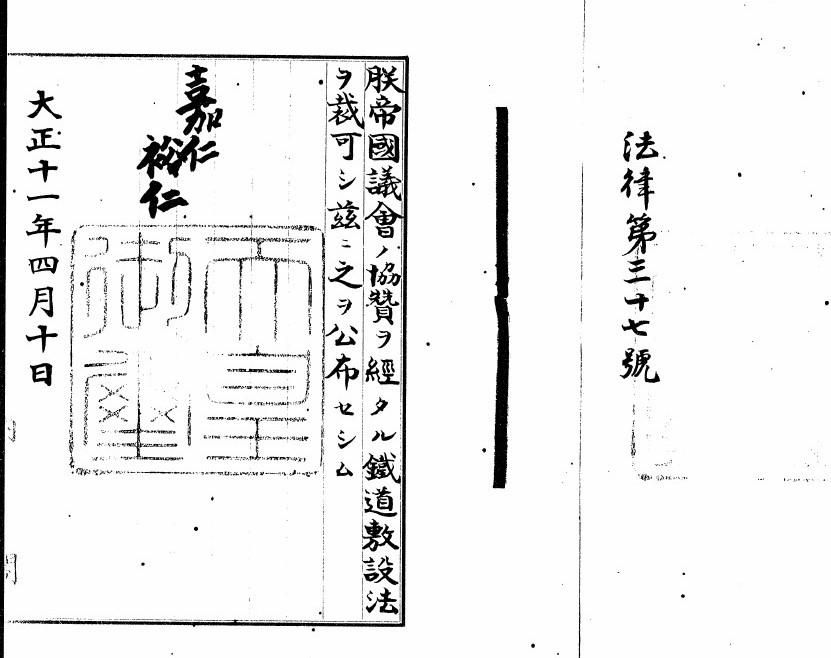 法律第三十七號
朕帝國議會ノ協贊ヲ經タル鐵道敷設法
ヲ裁可シ茲ニ之ヲ公布セシム
嘉仁
裕仁
天皇
御璽
大正十一年四月十日